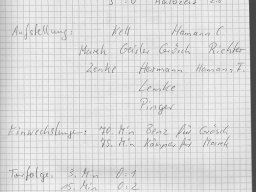 3:0 Halbzeit 2:0
Aufstellung: Kell Hamann C
Marek Geisler Grösch Richter
Zenke Hermann Hamann F.
Lemke
Pinger
Einwechslungen: 70. Min Benz für Grösch
75. Min Kämper für Marek
Torfolge: 3. Min 0:1
15. Min 0:2